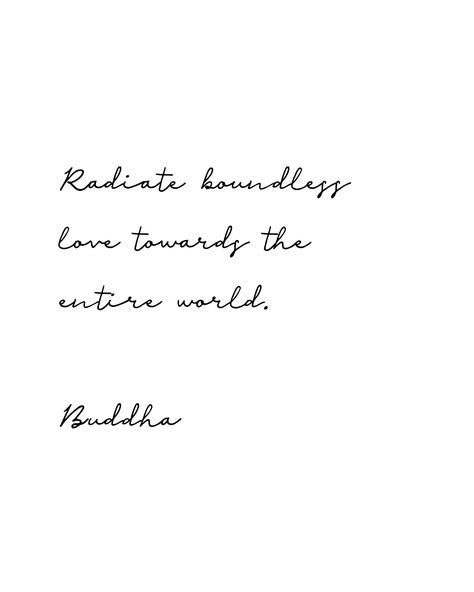 Radiate boundless
love towards the
entire world.
Buddha